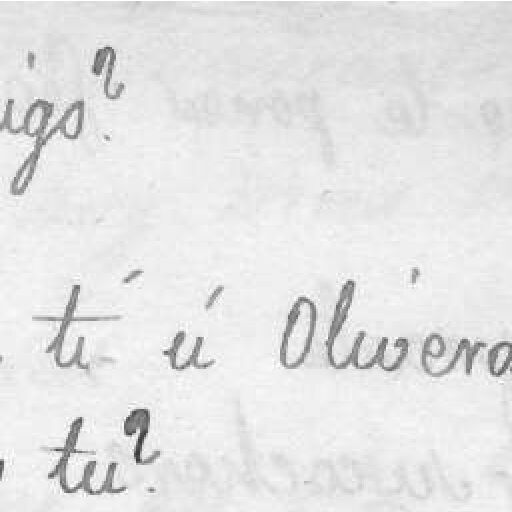 igo?
tú ú Olivera
tu?